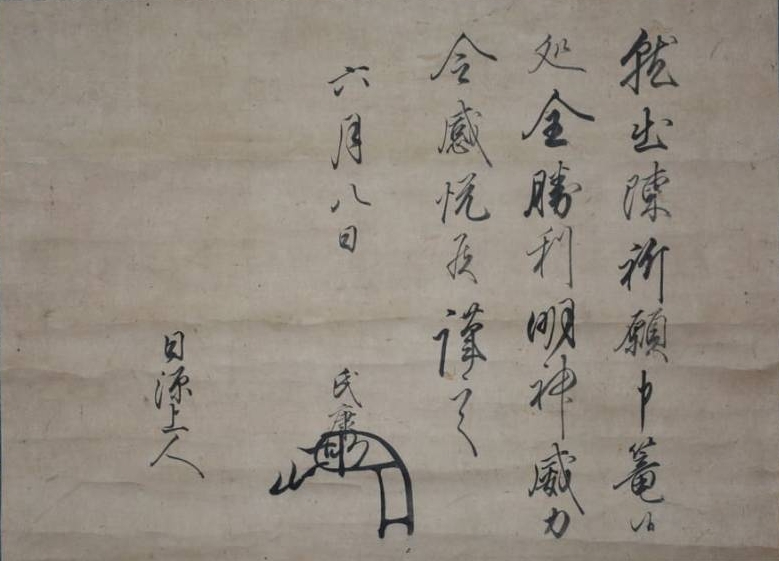 就出陳祈願申篭候
処全勝利明神威力
令感悦候謹言
六月八日
氏康
日源上人